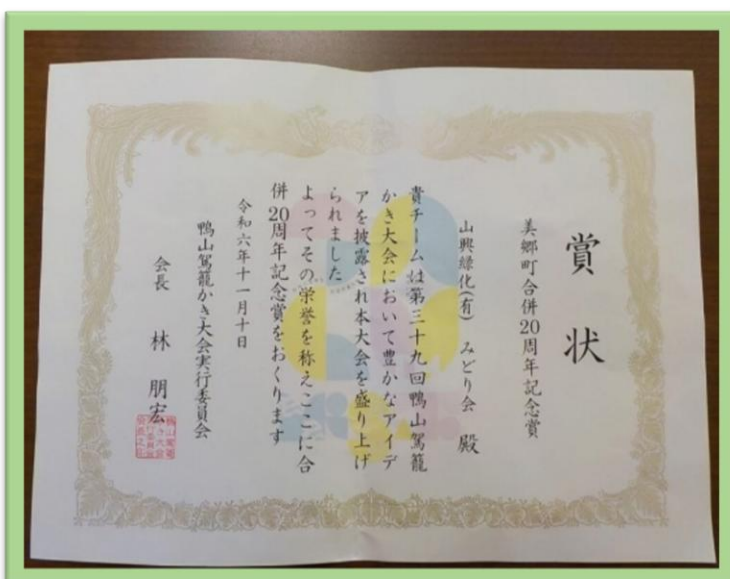 賞状
美郷町合併20周年記念賞
山興緑化(有) みどり会 殿
貴チームは第三十九回鴨山駕籠
かき大会において豊かなアイデ
アを披露され本大会を盛り上げ
られました
よってその栄誉を称えここに合
併20周年記念賞をおくります
令和六年十一月十日
鴨山駕籠かき大会実行委員会
会長 林 朋宏